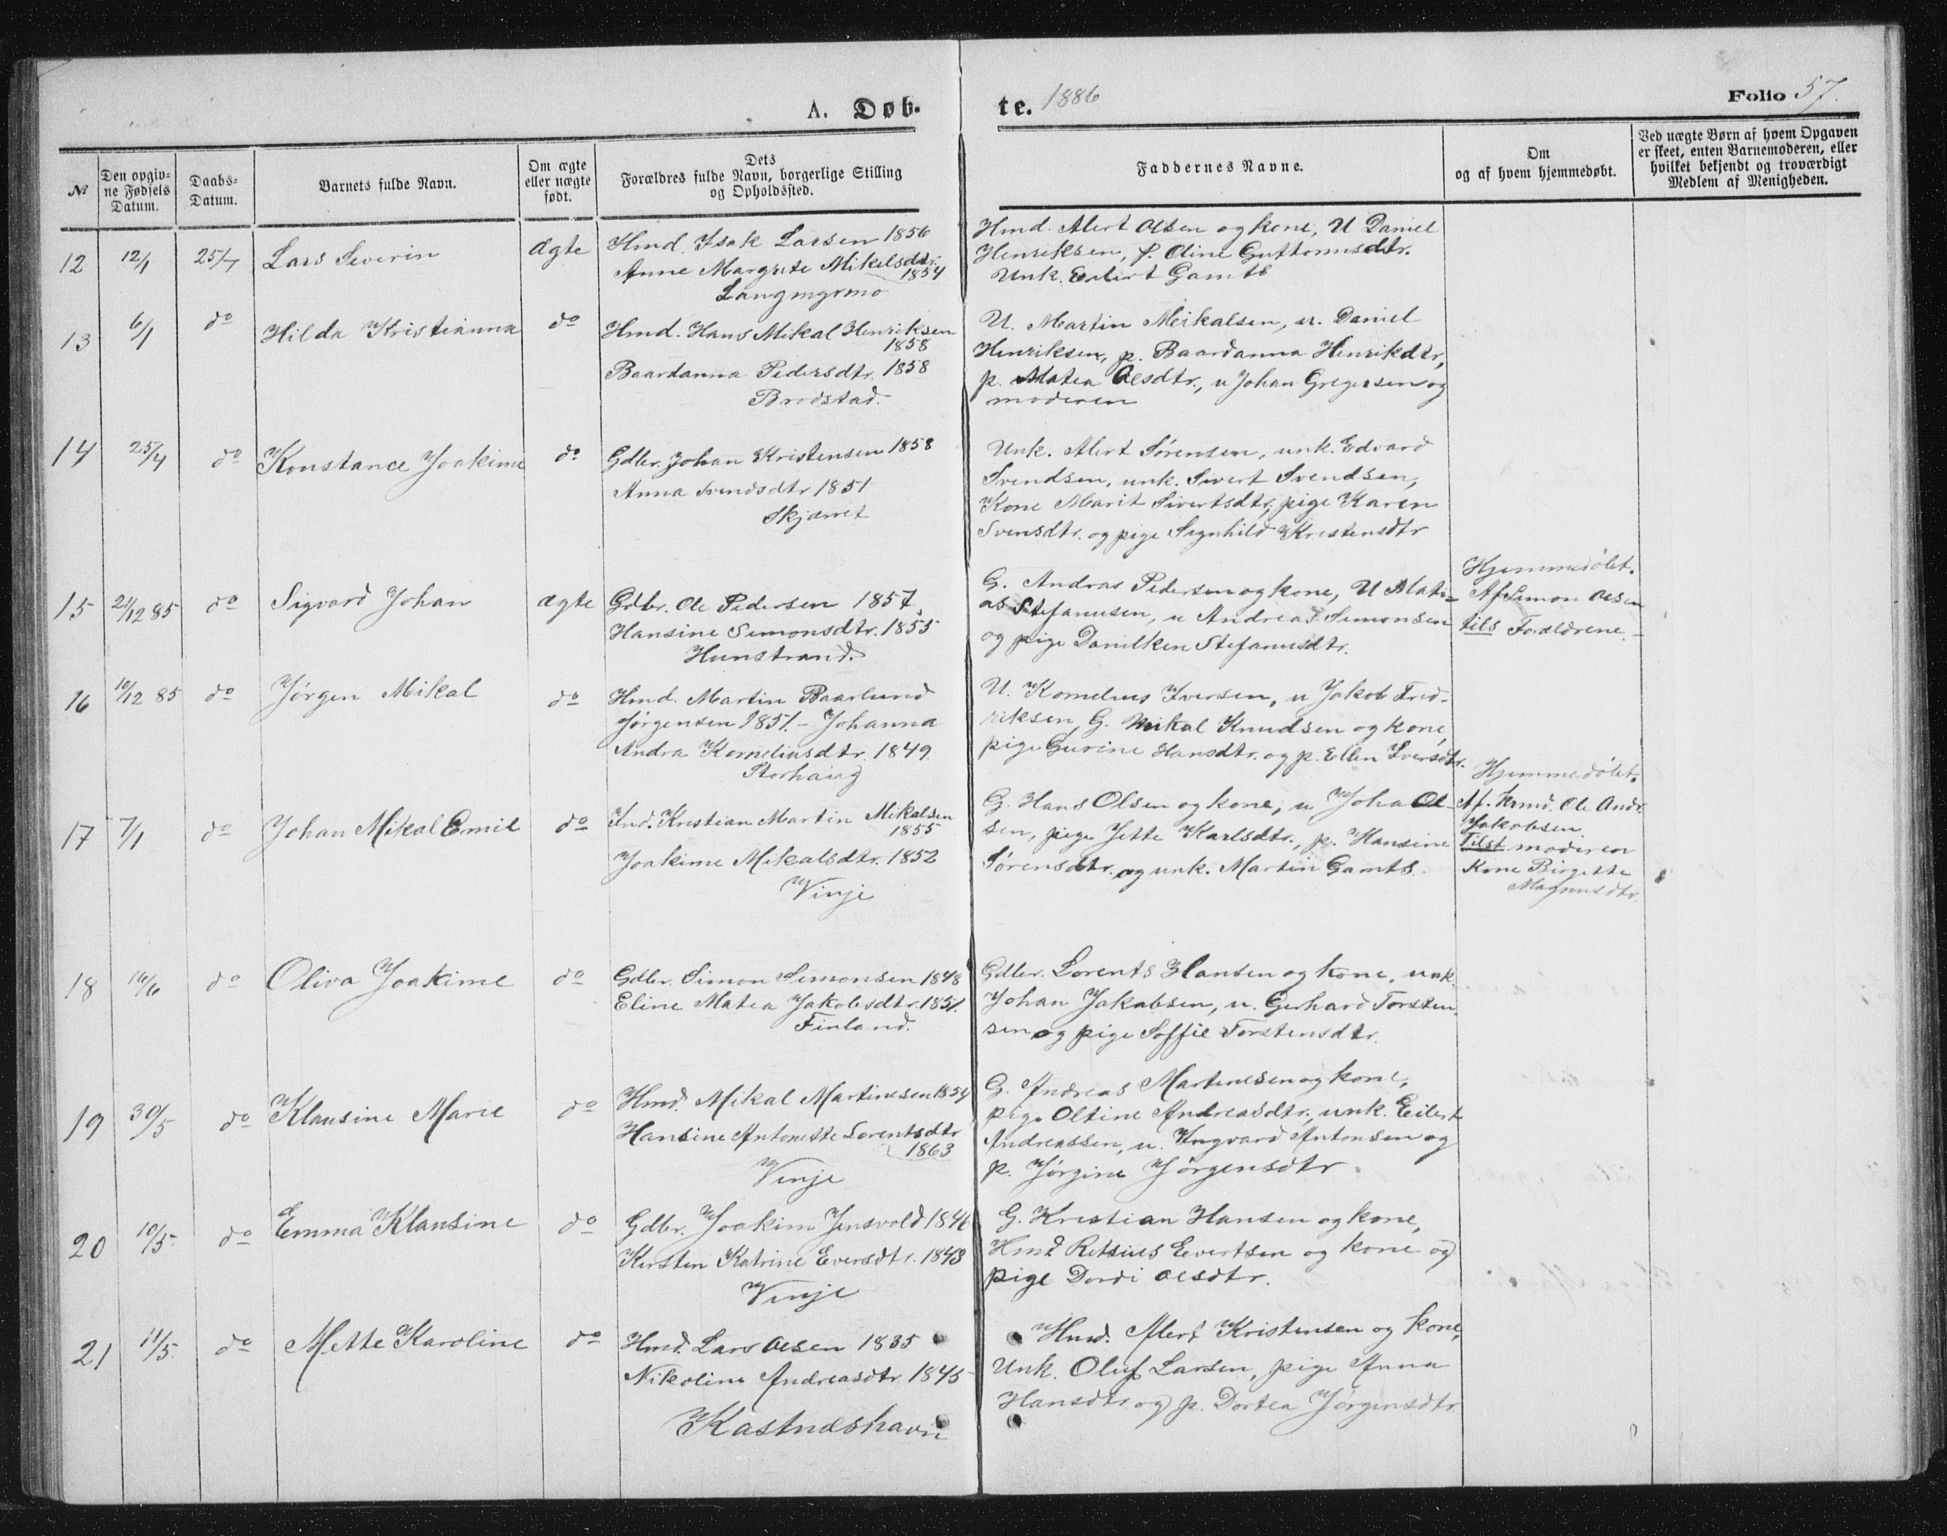 A. Døb- te. 1886
Folio 57.
№
Den opgiv-
ne Fødsels
Datum.
Daabs-
Datum.
Barnets fulde Navn.
Om ægte
eller uægte
født.
Dets
Forældres fulde Navn, borgerlige Stilling
og Opholdssted.
Faddernes Navne.
Om
og af hvem hjemmedøbt.
Ved uægte Børn af hvem Opgaven
er skeet, enten Barnemoderen, eller
hvilket bekjendt og troværdigt
Medlem af Menigheden.
12 12/1 25/7 Lars Severin ægte
Hmd. Isak Larsen 1856
Anne Margrete Mikelsdtr.
1854
Langmyrmo
Hmd. Alert Olsen og kone, U Daniel
Henriksen, p. Oline Guttormsdtr.
Unk. Edvert Gamts
13 6/1 do Hilda Kristianna do
Hmd. Hans Mikal Henriksen
1858
Baardanna Pedersdtr. 1858
Brodstad.
U. Martin Meikalsen, u. Daniel
Henriksen, p. Baardanna Henrikdtr,
p. Matea Olsdtr., u Johan Gregersen og
moderen
14 25/4 do Konstance Joakime do
Gdbr. Johan Kristensen 1858
Anna Svendsdtr 1851
Skjærret
Unk. Alert Sørensen, unk. Edvard
Svendsen, unk. Sivert Svendsen,
Kone Marit Sivertsdtr, pige Karen
Svensdtr. og pige Sagnhild Kristensdtr
15 21/12 85 do Sigvard Johan ægte
Gdbr. Ole Pedersen 1857,
Hansine Simonsdtr. 1855
Hunstrand.
G. Andras Pedersen og kone, U Mati-
as Stefanusen, u Andreas Simonsen
og pige Danilken Stefanusdtr.
Hjemmedøbt.
Af Simon Olsen
tils Forældrene.
16 10/12 85 do Jørgen Mikal do
Hmd. Martin Baarlund
Jørgensen 1851. - Johanna
Andra Korneliusdtr. 1849.
Storhaug
U. Kornelius Iversen, u Jakob Fred-
riksen, G. Mikal Knudsen og kone,
pige Gurine Hansdtr. og p. Ellen Iversdtr.
17 7/1 do Johan Mikal Emil do
Ind. Kristian Martin Mikalsen
1855
Joakime Mikalsdtr. 1852
Vinje
G. Hans Olsen og kone, u Joha Ol-
sen, pige Jette Karlsdtr., p. Hansine
Sørensdtr. og unk. Martin Gamts.
Hjemmedøbt.
Af. kmd. Ole Andr.
Jakobsen.
Tilst moderen
Kone Birgitte
Magnusdtr.
18 16/6 do Oliva Joakime do
Gdbr. Simon Simonsen 1848
Eline Matea Jakobsdtr. 1851.
Finland.
Gdbr. Lorents Hansen og kone, unk.
Johan Jakobsen, u. Gerhard Torsten-
sen og pige Soffie Torstensdtr.
19 30/5 do Klausine Marie do
Hmd. Mikal Martinesen 1854
Hansine Antonette Lorentsdtr
1863
Vinje
G. Andreas Martinesen og kone,
pige Oltine Andreasdtr., unk. Eilert
Andreassen, u. Ingvard Antonsen og
p. Jørgine Jørgensdtr.
20 10/5 do Emma Klausine do
Gdbr. Joakim Jensvold 1846
Kirsten Katrine Eversdtr. 1843
Vinje
G. Kristian Hansen og kone,
Hmd Retsius Evertsen og kone og
pige Dordi Olsdtr.
21 11/5 do Mette Karoline do
Hmd. Lars Olsen 1835
Nikoline Andreasdtr. 1845
Kastneshavn
Hmd. Alert Kristensen og kone,
Unk. Oluf Larsen, pige Anna
Hansdtr og p. Dortea Jørgensdtr.